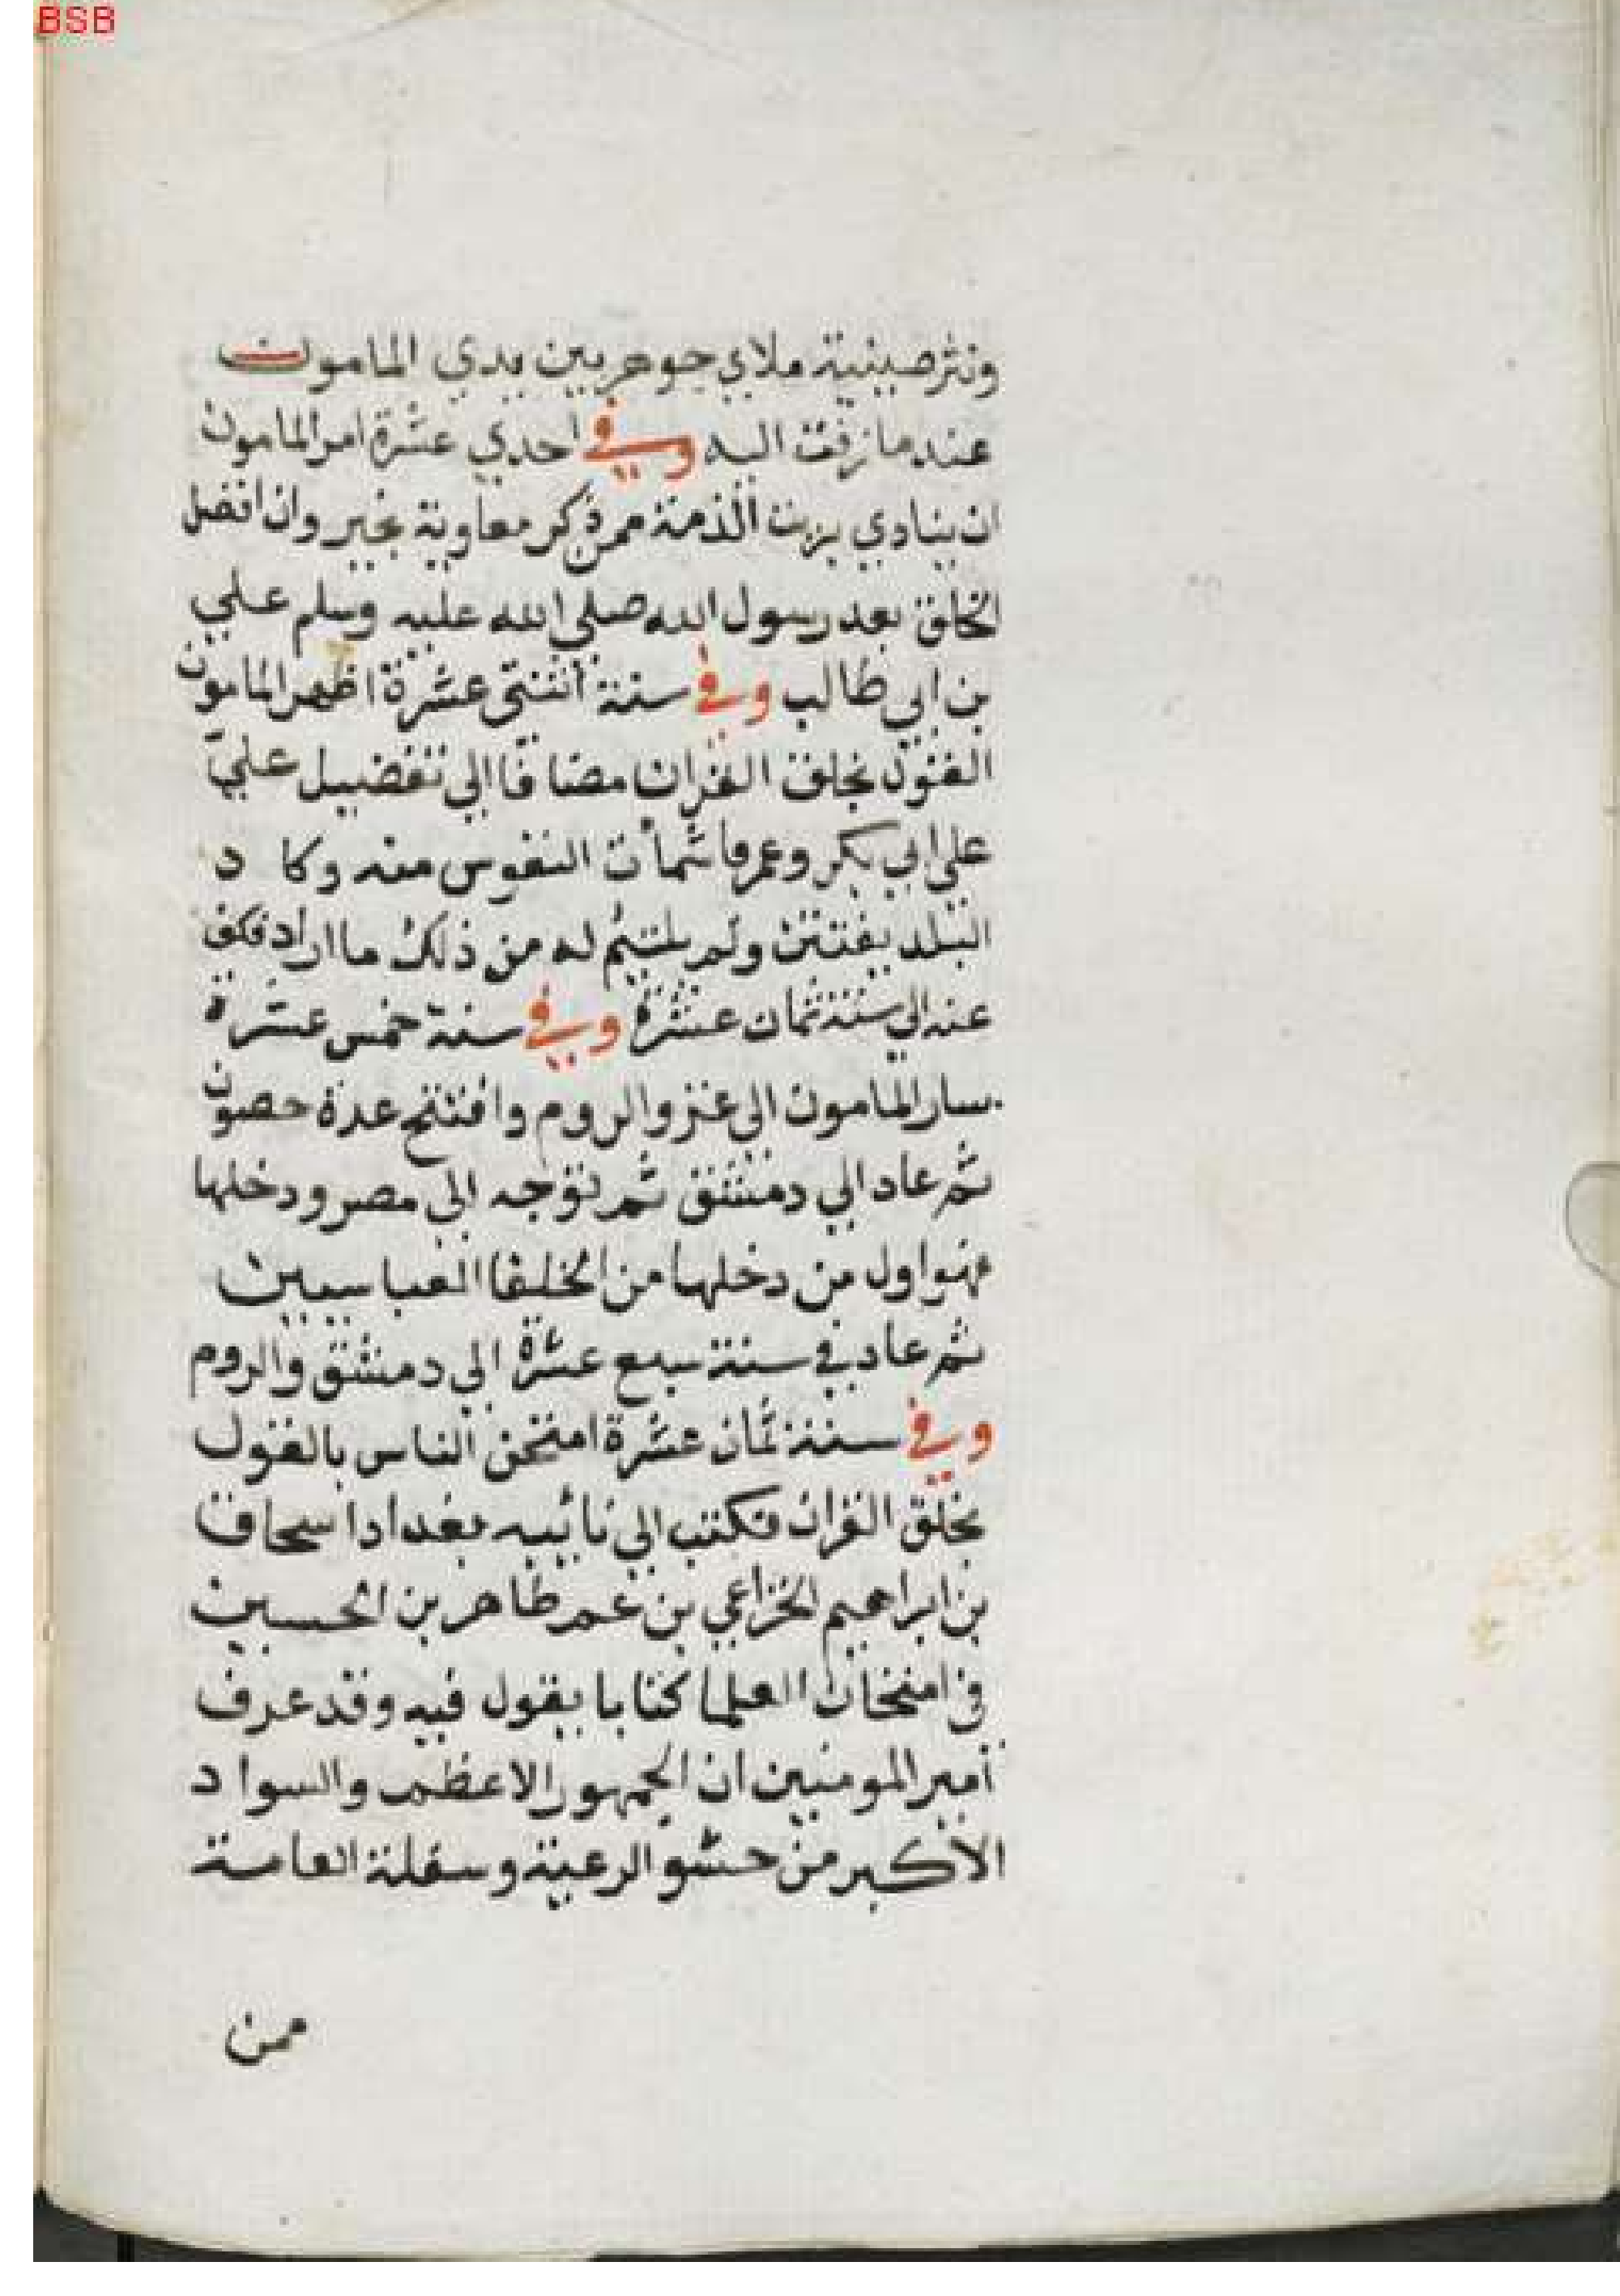 BSB
ونثر صينية ملاي جوهر بين يدي المامون
عندما زفت اليه وفي احدي عشرة امر المامون
ان ينادي برئت الذمة ممن ذكر معاوية بخير وان افضل
الخلق بعد رسول الله صلي الله عليه وسلم علي
بن ابي طالب وفي سنة اثنتي عشرة اظهر المامون
القول بخلق القران مضافا الي تفضيل علي
علي ابي بكر وعمر فاشمأت النفوس منه وكا د
البلد يفتتن ولم يلتيم له من ذلك ما اراد فكف
عنه الي سنة ثمان عشرة وفي سنة خمس عشرة
سار المامون الي غزو الروم وافتتح عدة حصون
ثم عاد الي دمشق ثم توجه الي مصر ودخلها
فهو اول من دخلها من الخلفا العباسيين
ثم عاد في سنة سبع عشرة الي دمشق والروم
وفي سنة ثمان عشرة امتحن الناس بالقول
بخلق القران فكتب الي نائبه ببغداد اسحاق
بن ابراهيم الخزاعي بن عم طاهر بن الحسين
في امتحان العلما كتابا يقول فيه وقد عرف
أمير المومنين ان الجمهور الاعظم والسوا د
الاكبر من حشو الرعية وسفلة العامة
ممن